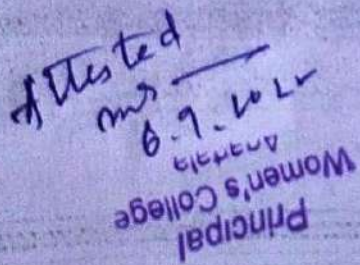 Attested
6.9.2022
Principal
Women's College
Agartala